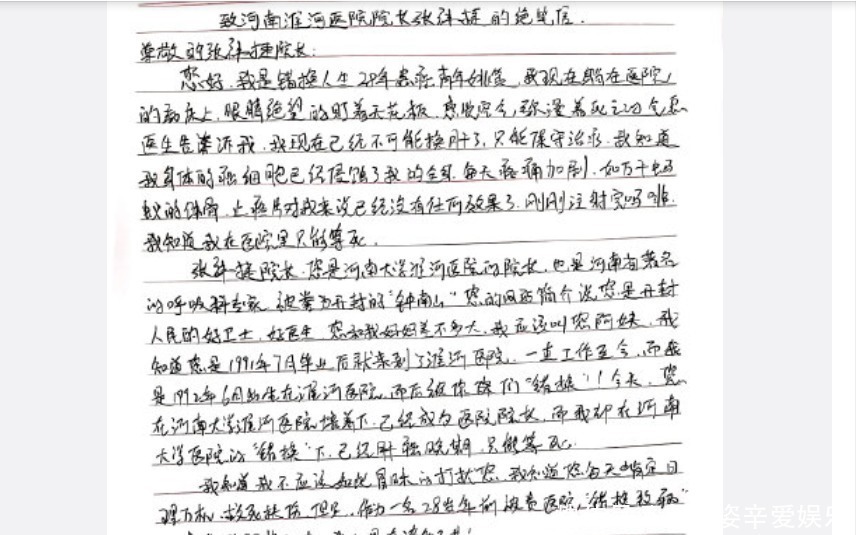 致河南淮河医院院长张祎捷的绝笔信.
尊敬的张祎捷院长:
您好,我是错换人生28年患癌青年姚策,我现在躺在医院
的病床上,眼睛绝望的盯着天花板,感觉空气弥漫着死亡的气息
医生告诉我,我现在已经不可能换肝了,只能保守治疗,我知道
我身体的癌细胞已经侵蚀了我的全身,每天疼痛加剧,如万千蚂
蚁的体降,止疼片对我来说已经没有任何效果了,刚刚注射完吗啡.
我知道我在医院里只能等死.
张祎捷院长,您是河南大学淮河医院的院长,也是河南省著名
的呼吸科专家,被誉为开封的"钟南山"您的网页简介说您是开封
人民的好卫士,好医生,您和我妈妈差不多大,我应该叫您阿姨,我
知道您是1991年7月毕业后就来到了淮河医院,一直工作至今,而我
是1992年6月出生在淮河医院,而后被你们"错换"!今天,您
在河南大学淮河医院培养下,已经成为医院院长,而我却在河南
大学医院的"错换"下,已经肝癌晚期,只能等死.
我知道我不应该如此冒昧的打扰您,我知道您每天肯定日
理万机,救死扶伤,但是,作为一名28岁年前被贵医院"错换
姿辛爱娱乐